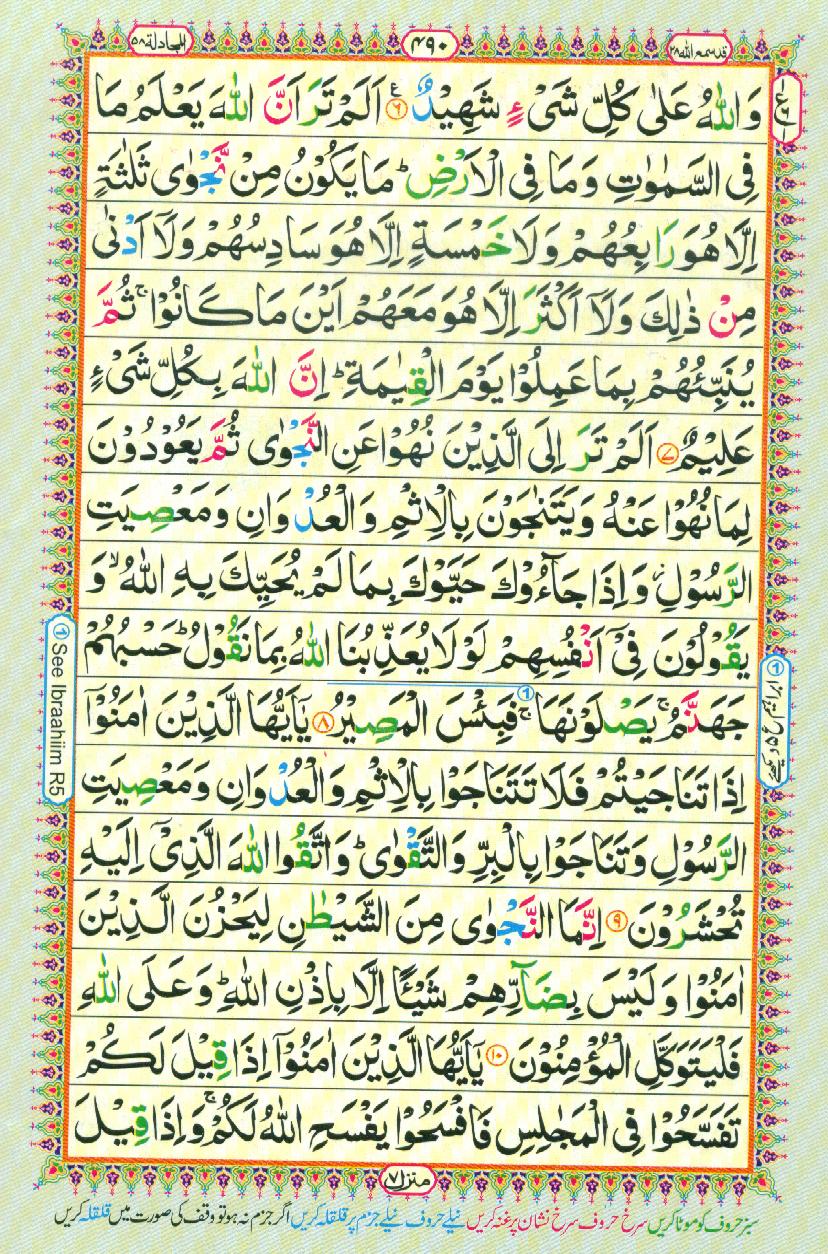 المجادلة ۵۸
۴۹۰
قد سمع الله ۲۸
وَاللّٰهُ عَلٰى كُلِّ شَىْءٍ شَهِيْدٌ ۶ اَلَمْ تَرَ اَنَّ اللّٰهَ يَعْلَمُ مَا
فِى السَّمٰوٰتِ وَمَا فِى الْاَرْضِ ؕ مَا يَكُوْنُ مِنْ نَّجْوٰى ثَلٰثَةٍ
اِلَّا هُوَ رَابِعُهُمْ وَلَا خَمْسَةٍ اِلَّا هُوَ سَادِسُهُمْ وَلَاۤ اَدْنٰى
مِنْ ذٰلِكَ وَلَاۤ اَكْثَرَ اِلَّا هُوَ مَعَهُمْ اَيْنَ مَا كَانُوْا ۚ ثُمَّ
يُنَبِّئُهُمْ بِمَا عَمِلُوْا يَوْمَ الْقِيٰمَةِ ؕ اِنَّ اللّٰهَ بِكُلِّ شَىْءٍ
عَلِيْمٌ ۷ اَلَمْ تَرَ اِلَى الَّذِيْنَ نُهُوْا عَنِ النَّجْوٰى ثُمَّ يَعُوْدُوْنَ
لِمَا نُهُوْا عَنْهُ وَيَتَنٰجَوْنَ بِالْاِثْمِ وَالْعُدْوَانِ وَمَعْصِيَتِ
الرَّسُوْلِ ؗ وَاِذَا جَآءُوْكَ حَيَّوْكَ بِمَا لَمْ يُحَيِّكَ بِهِ اللّٰهُ ۙ وَ
يَقُوْلُوْنَ فِىْۤ اَنْفُسِهِمْ لَوْلَا يُعَذِّبُنَا اللّٰهُ بِمَا نَقُوْلُ ؕ حَسْبُهُمْ
جَهَنَّمُ ۚ يَصْلَوْنَهَا ۚ ① فَبِئْسَ الْمَصِيْرُ ۸ يٰۤاَيُّهَا الَّذِيْنَ اٰمَنُوْۤا
اِذَا تَنَاجَيْتُمْ فَلَا تَتَنَاجَوْا بِالْاِثْمِ وَالْعُدْوَانِ وَمَعْصِيَتِ
الرَّسُوْلِ وَتَنَاجَوْا بِالْبِرِّ وَالتَّقْوٰى ؕ وَاتَّقُوا اللّٰهَ الَّذِىْۤ اِلَيْهِ
تُحْشَرُوْنَ ۹ اِنَّمَا النَّجْوٰى مِنَ الشَّيْطٰنِ لِيَحْزُنَ الَّذِيْنَ
اٰمَنُوْا وَلَيْسَ بِضَآرِّهِمْ شَيْـًٔا اِلَّا بِاِذْنِ اللّٰهِ ؕ وَعَلَى اللّٰهِ
فَلْيَتَوَكَّلِ الْمُؤْمِنُوْنَ ۱۰ يٰۤاَيُّهَا الَّذِيْنَ اٰمَنُوْۤا اِذَا قِيْلَ لَكُمْ
تَفَسَّحُوْا فِى الْمَجٰلِسِ فَافْسَحُوْا يَفْسَحِ اللّٰهُ لَكُمْ ۚ وَاِذَا قِيْلَ
① See Ibraahiim R5
منزل ۷
سبز حروف کو موٹا کریں سرخ حروف سرخ نشان پر غنہ کریں نیلے حروف نیلے جزم پر قلقلہ کریں اگر جزم نہ ہو تو وقف کی صورت میں قلقلہ کریں